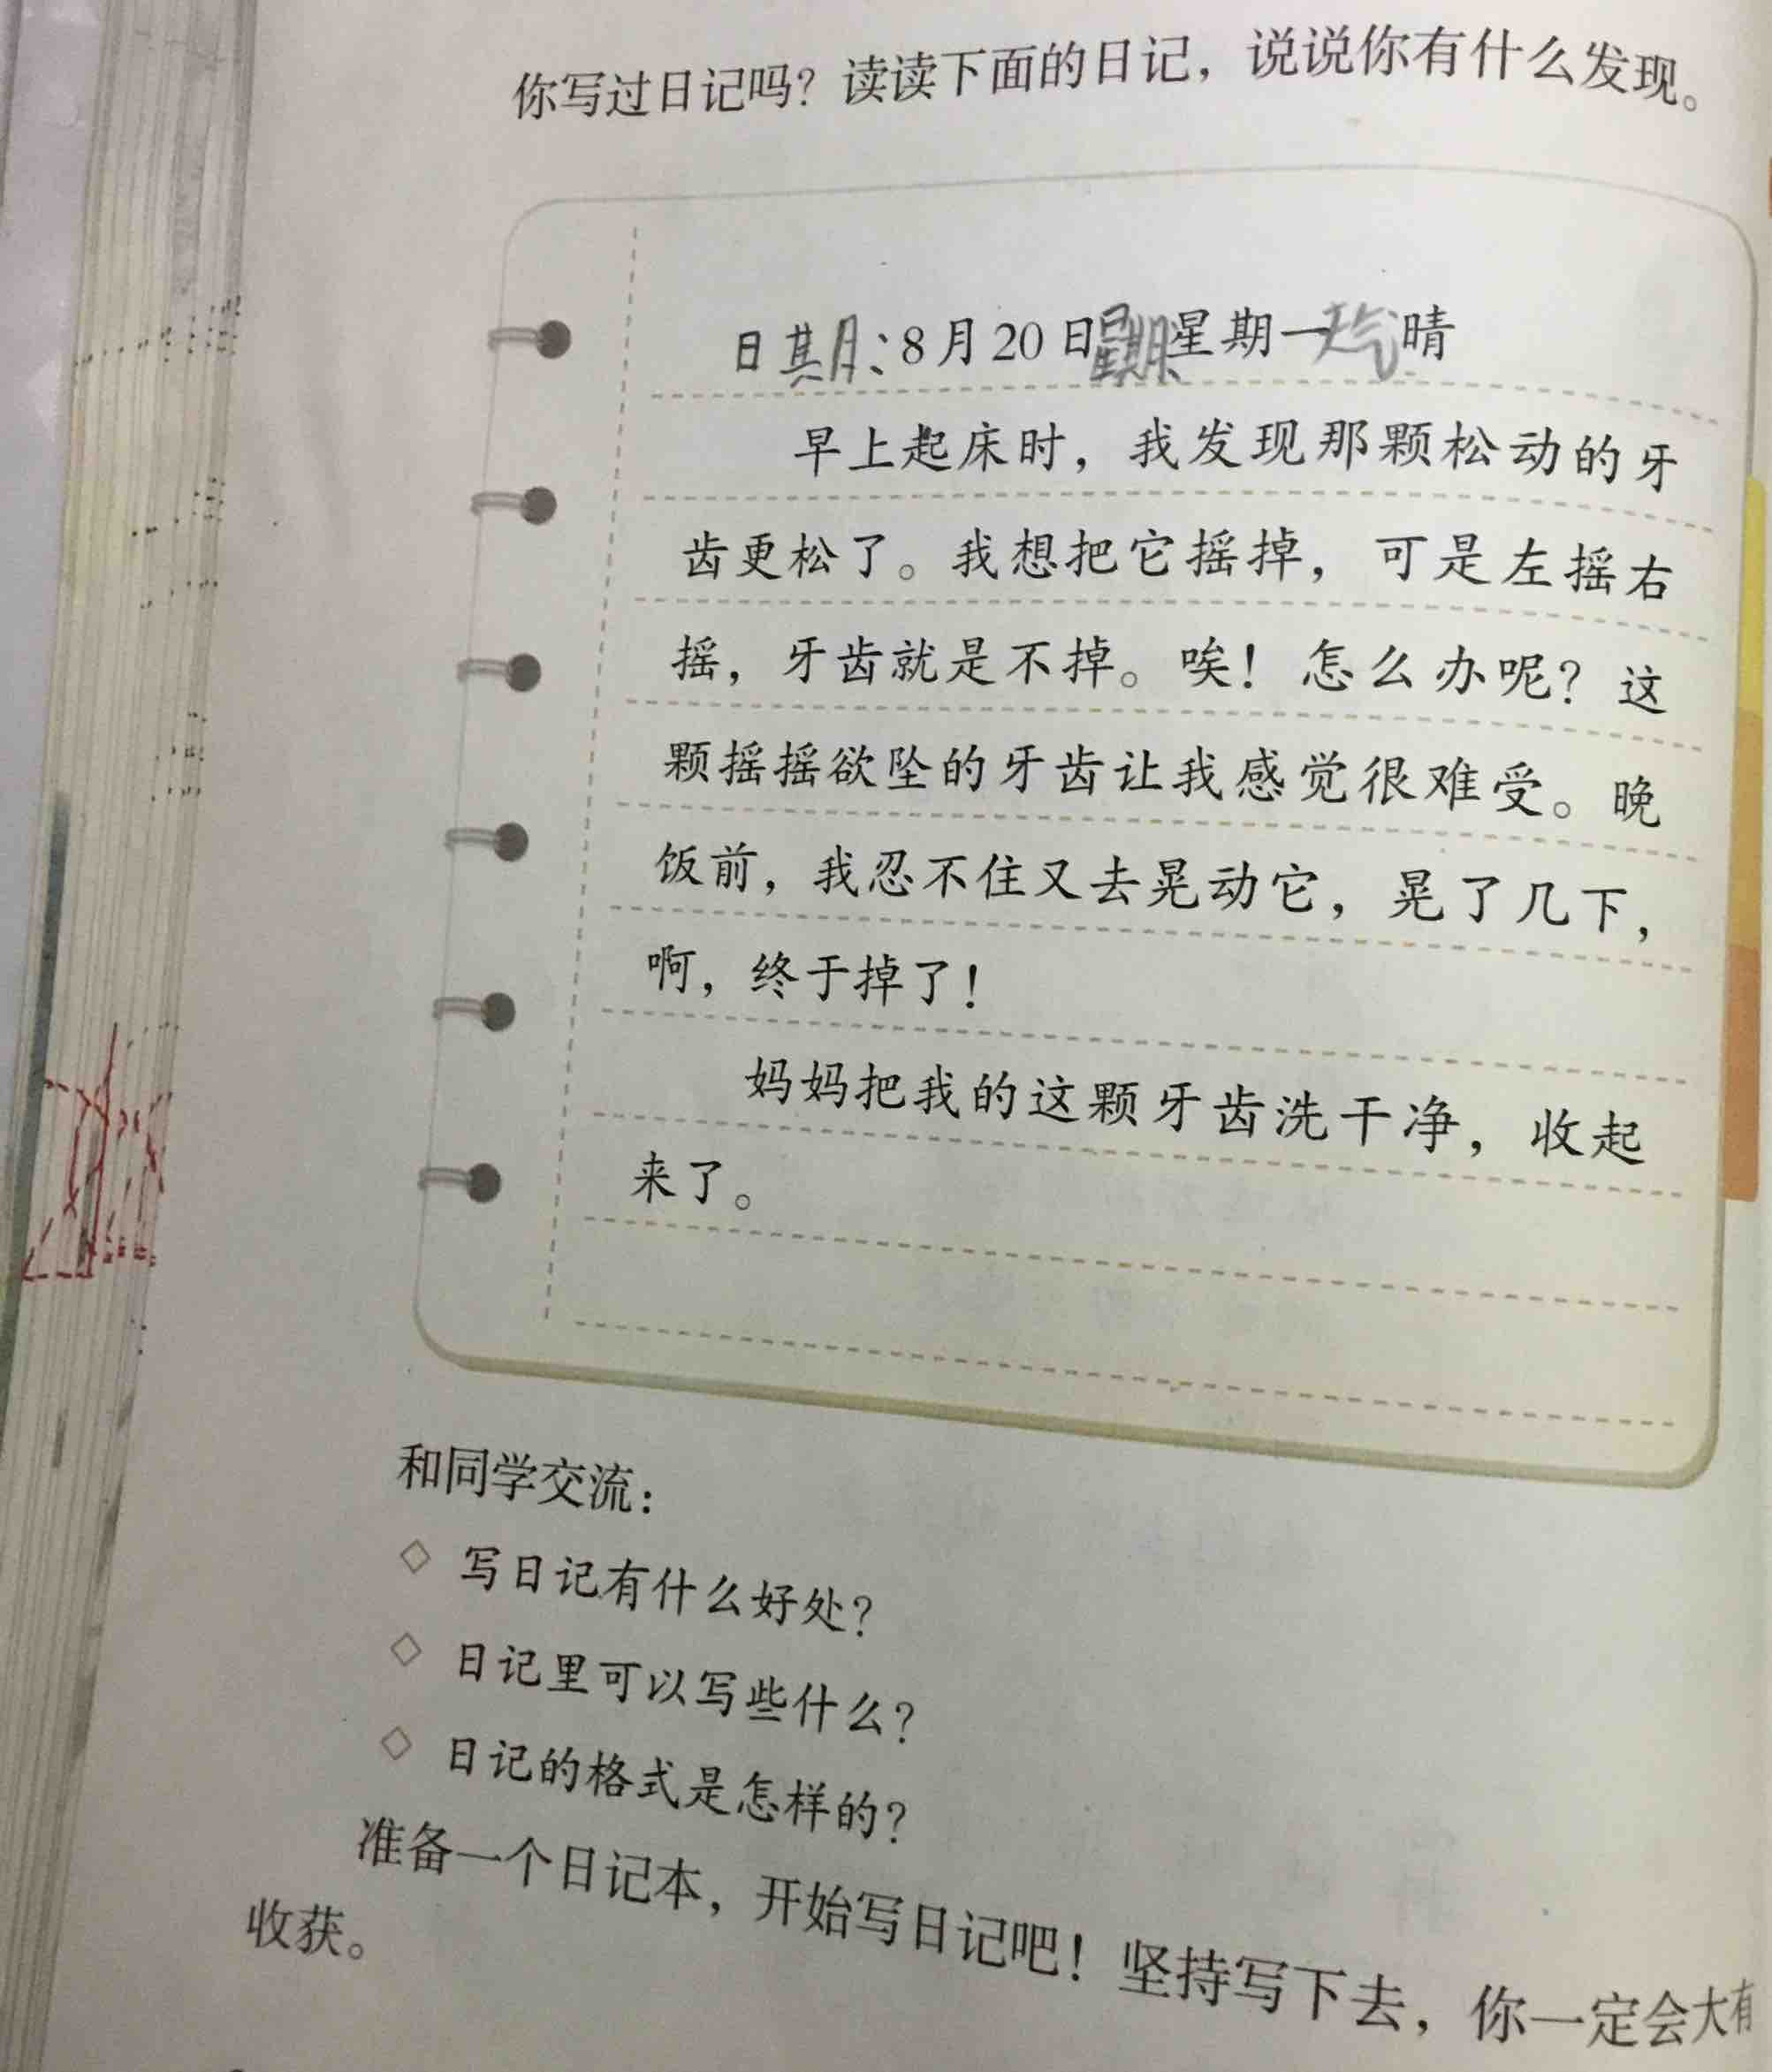 你写过日记吗？读读下面的日记，说说你有什么发现。
日期：8月20日星期星期一天气晴
早上起床时，我发现那颗松动的牙
齿更松了。我想把它摇掉，可是左摇右
摇，牙齿就是不掉。唉！怎么办呢？这
颗摇摇欲坠的牙齿让我感觉很难受。晚
饭前，我忍不住又去晃动它，晃了几下，
啊，终于掉了！
妈妈把我的这颗牙齿洗干净，收起
来了。
和同学交流：
◇ 写日记有什么好处？
◇ 日记里可以写些什么？
◇ 日记的格式是怎样的？
准备一个日记本，开始写日记吧！坚持写下去，你一定会大有
收获。